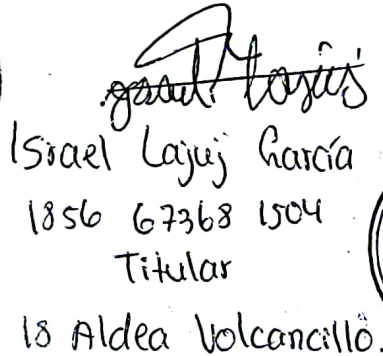 Israel Lajuj García
1856 67368 1504
Titular
18 Aldea Volcancillo.